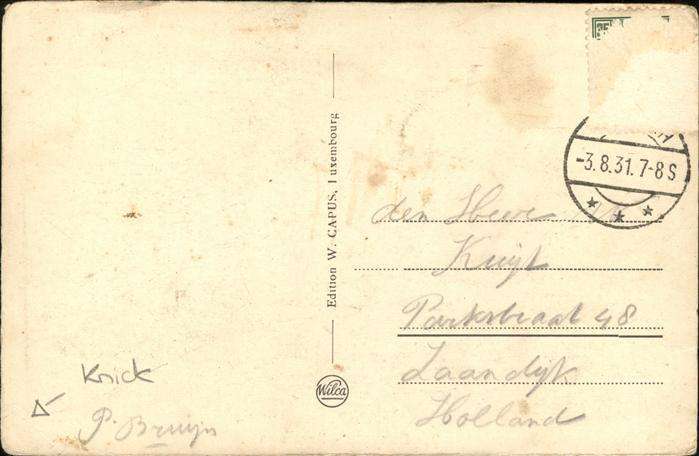 Knick
P. Bruijn
Edition W. CAPUS, Luxembourg
Wilco
-3.8.31.7-8 S
den Heere
Kuijt
Parkstraat 48
Zaandijk
Holland